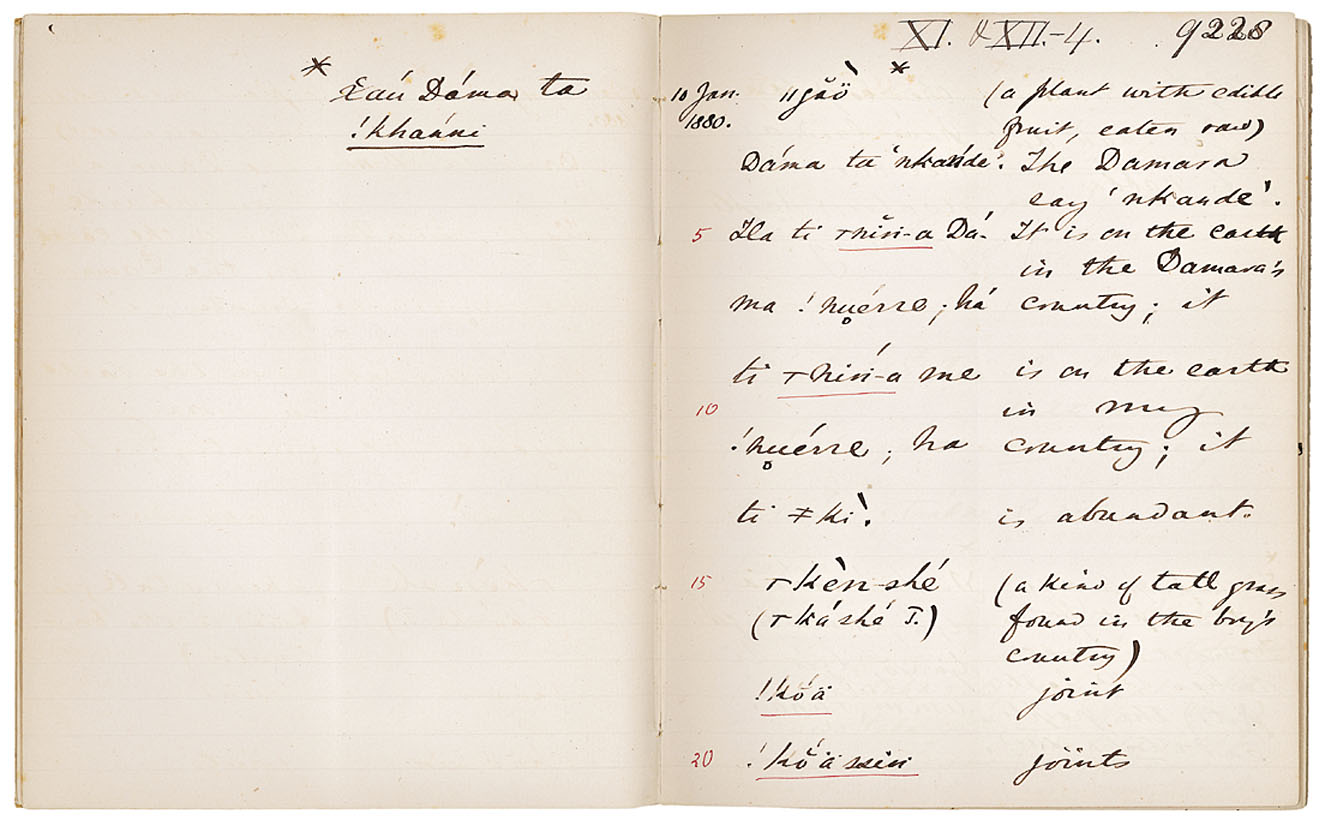 * Ʞau Dáma ta
!khanni
XI. & XII.-4. 9228
*
10 Jan. ǁgǎö̀ (a plant with edible
1880. fruit, eaten raw)
Dáma ta 'nkande'. The Damara
say 'nkande'.
5 Ha ti ⊤nin-a Dá- It is on the earth
in the Damara's
ma !nuérre; há country; it
ti ⊤nin-a me is on the earth
10 in my
!nuérre; ha country; it
ti ǂki. is abundant.
15 ⊤kèn-shé (a kind of tall grass
(⊤káshé T.) found in the boy's
country)
!kǒ́ä joint
20 !kǒ́ässin joints